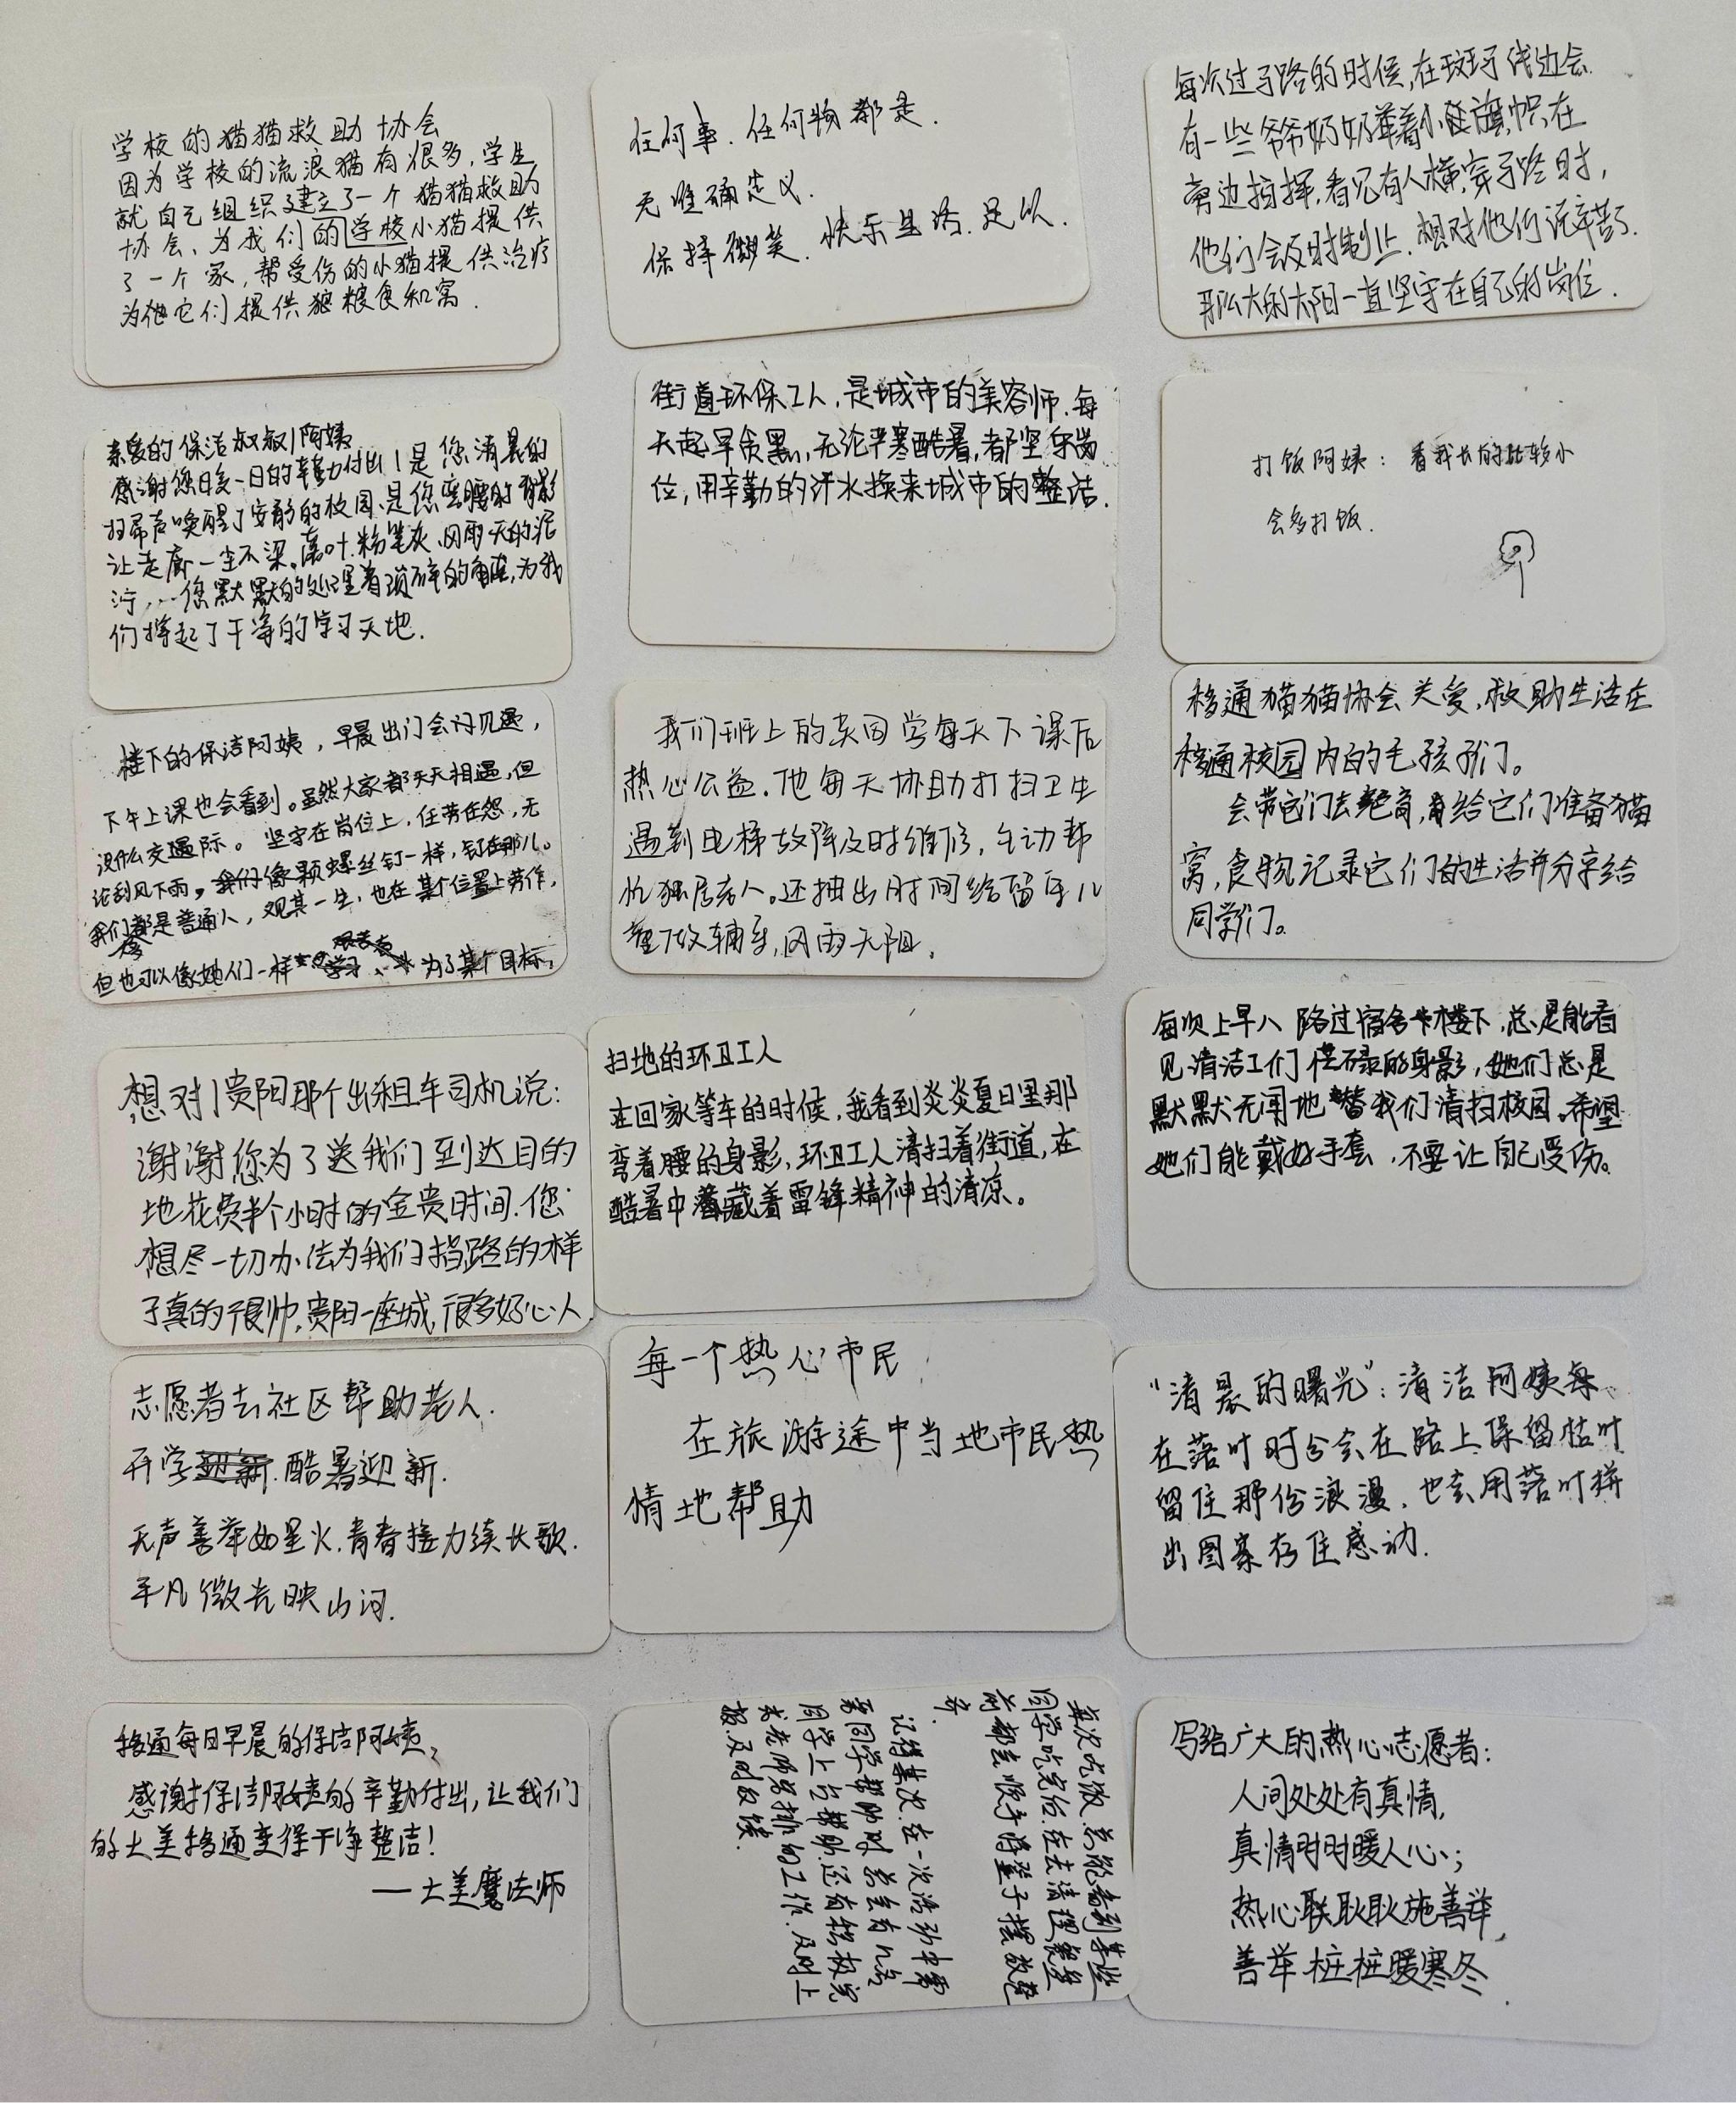 学校的猫猫救助协会
因为学校的流浪猫有很多，学生
就自己组织建立了一个猫猫救助
协会、为我们的学校小猫提供
了一个家，帮受伤的小猫提供治疗
为他它们提供粮食和窝．
任何事．任何物都是．
无准确定义．
保持微笑．快乐生活．足以．
每次过马路的时候,在斑马线边会
有一些爷爷奶奶举着小旗帜在
旁边指挥,看见有人横穿马路时,
他们会及时制止．想对他们说辛苦了．
那么大的太阳一直坚守在自己的岗位．
亲爱的保洁叔叔/阿姨
感谢您日复一日的辛勤付出！是您清晨的
扫帚声唤醒了安静的校园、是您弯腰的背影
让走廊一尘不染。落叶.粉笔灰、风雨天的泥
泞，...您默默的处理着琐碎的角落,为我
们撑起了干净的学习天地．
街道环保工人,是城市的美容师.每
天起早贪黑,无论严寒酷暑,都坚守岗
位,用辛勤的汗水换来城市的整洁．
打饭阿姨：看我长的比较小
会多打饭．
楼下的保洁阿姨，早晨出门会遇，
下午上课也会看到。虽然大家都天天相遇,但
没什么交际。坚守在岗位上，任劳任怨，无
论刮风下雨。我们像颗螺丝钉一样,钉在那儿。
我们都是普通人，观其一生，也在某个位置上劳作，
但也可以像她们一样学习、为了某个目标，
我们班上的英同学每天下课后
热心公益．他每天协助打扫卫生
遇到电梯故障及时维修，主动帮
忙独居老人。还抽出时间给留守儿
童做辅导,风雨无阻．
移通猫猫协会关爱,救助生活在
移通校园内的毛孩子们。
会带它们去绝育,给它们准备猫
窝,食物记录它们的生活并分享给
同学们。
想对贵阳那个出租车司机说：
谢谢您为了送我们到达目的
地花费半个小时的金贵时间．您
想尽一切办法为我们挡路的样
子真的很帅,贵阳一座城,很多好心人
扫地的环卫工人
在回家等车的时候，我看到炎炎夏日里那
弯着腰的身影，环卫工人清扫着街道，在
酷暑中藏着雷锋精神的清凉。
每次上早八 路过宿舍楼下，总是能看
见清洁工们忙碌的身影，她们总是
默默无闻地替我们清扫校园。希望
她们能戴好手套，不要让自己受伤。
志愿者去社区帮助老人．
开学迎新．酷暑迎新．
无声善举如星火．青春接力续长歌．
平凡微光映山河．
每一个热心市民
在旅游途中当地市民热
情地帮助
“清晨的曙光”：清洁阿姨每
在落叶时分会在路上保留枯叶
留住那份浪漫．也会用落叶拼
出图案存住感动．
移通每日早晨的保洁阿姨，
感谢保洁阿姨的辛勤付出,让我们
的土美移通变得干净整洁！
——土美魔法师
每次吃饭,总能看到某些
同学吃完后,在去清理餐盘
前都会顺手将凳子摆放整
齐．
记得某次,在一次活动中需
要同学帮助时,总会有几名
同学上台帮助．还有积极完
成老师安排的工作．及时上
报,及时反馈．
写给广大的热心志愿者：
人间处处有真情,
真情时时暖人心；
热心联耿耿施善举,
善举桩桩暖寒冬．